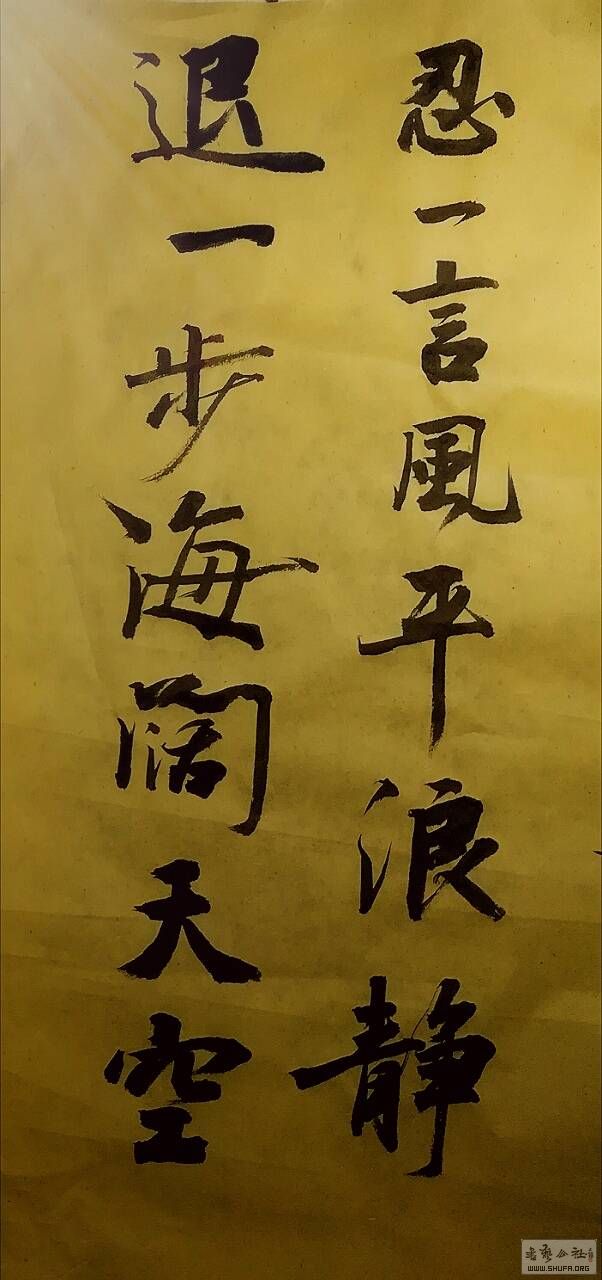 忍一言風平浪静
退一步海闊天空
書藝公社
WWW.SHUFA.ORG